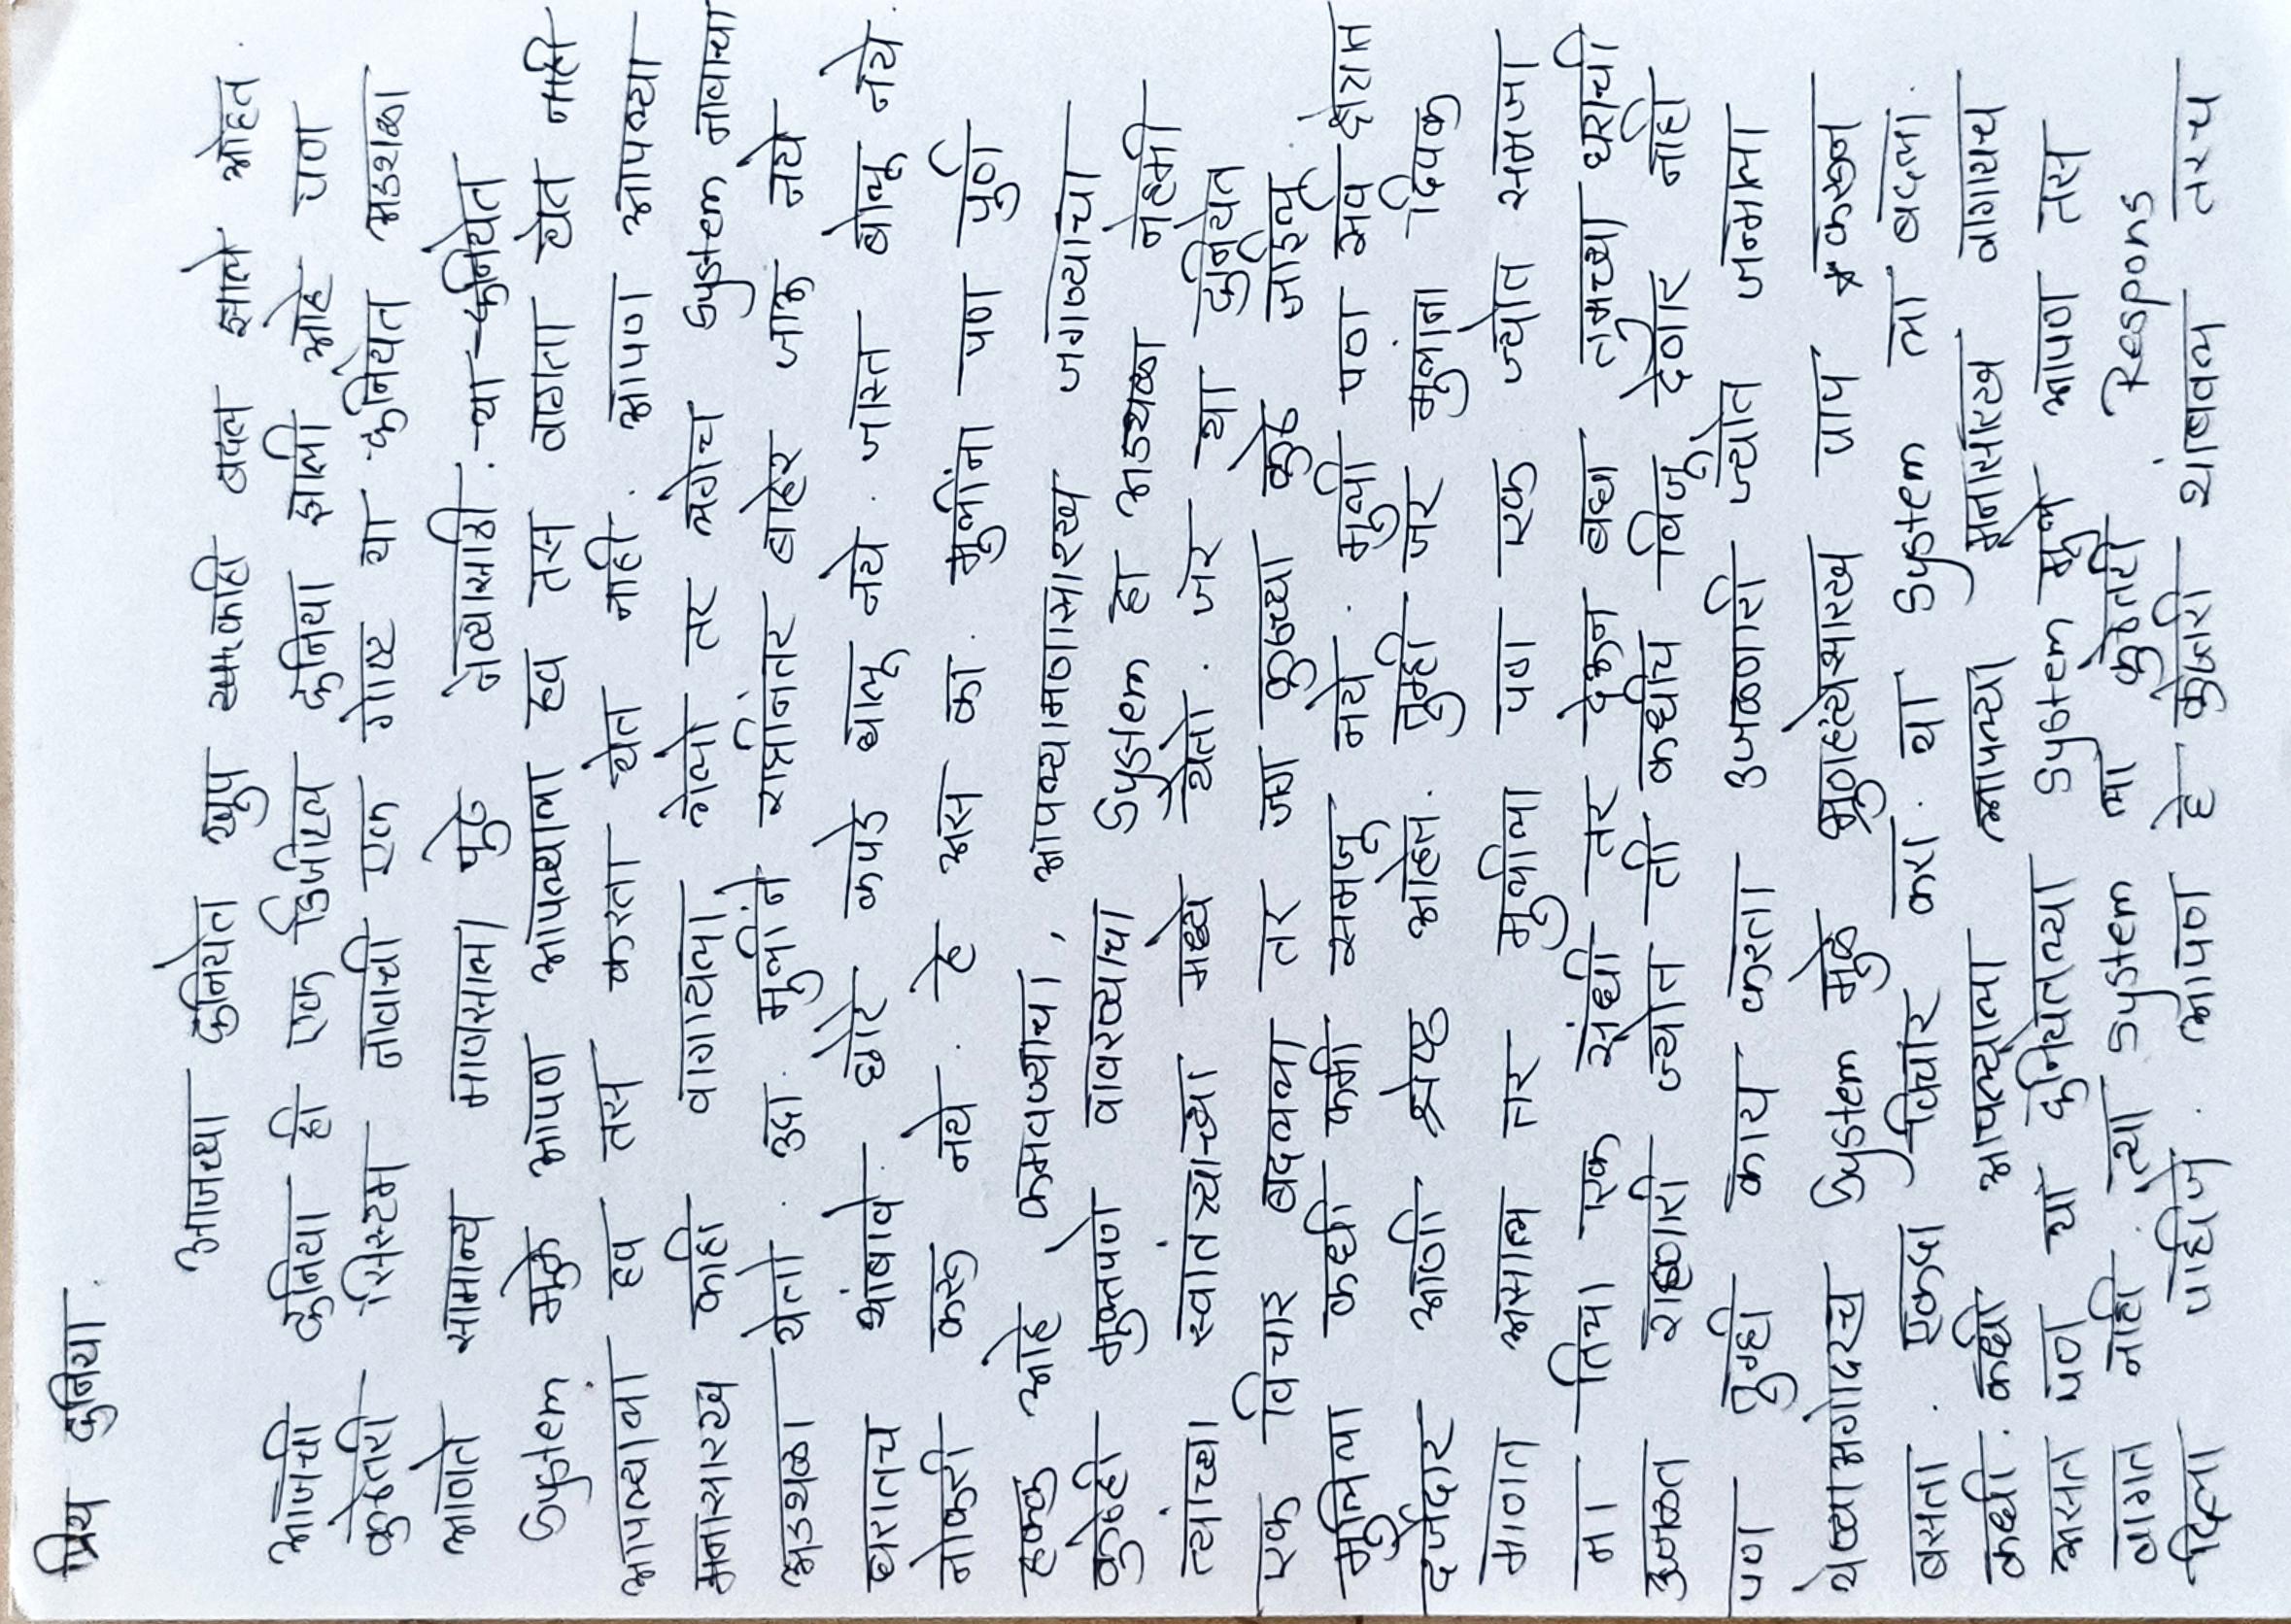 प्रिय दुनिया.
आजच्या दुनियेत खुप काही बदल झाले आहेत.
आजची दुनिया ही एक डिजीटल दुनिया झाली आहे पण
कुठेतरी सिस्टम नावाची एक गोष्ट या दुनियेत अडथळा
आणते सामान्य माणसाला पुढे नेण्यासाठी. या दुनियेत
System मुळे आपण आपल्याला हव तस वागता येत नाही
आपल्याला हव तस करता येत नाही. आपण आपल्या
मनासारख काही वागायला गेलो तर लगेच System नावाचा
अडथळा येतो. उदा. मुलींने रात्रीनंतर बाहेर जाऊ नये
घरातच थांबावे. छोटे कपडे घालू नये. जास्त बोलू नये
नोकरी करू नये. हे अस का. मुलींना पण पुर्ण
हक्क आहे कमवण्याचा, आपल्यामणासारख्य जगण्याचा
कुठेही मुक्तपणे वावरण्याचा System हा अडथळा नेहमी
त्यांच्या स्वातंत्र्याच्या मध्ये येतो. जर या दुनियेत
एक विचार बदलला तर जग कुठच्या कुठे जाईल.
मुलीला कधी कमी समजू नये. मुली पण सर्व क्षेत्रात
दर्जेदार आणी श्रेष्ठ आहेत. तुम्ही जर मुलांना दिपक
मानता असाल तर मुलीला पण एक ज्योत समजा
ना तिला एक संधी तर देऊन बघा तुमच्या घराची
उजळत राहणारी ज्योत ती कधीच विजू देणार नाही
पण तुम्ही काय करता उजळणारी ज्योत जन्माला
येण्याअगोदरच System मुळे भ्रुणहत्येसारख पाप करून
बसता. एकदा विचार करा. या System ला बदला.
कधी कधी आपल्याला आपल्या मनासारख वागायच
असत पण या दुनियेतल्या System मुळे आपण तस
वागत नाही. त्या System ला कुठेतरी Respons
दिला पाहिजे. आपण हे कुठेतरी थांबवल तरच